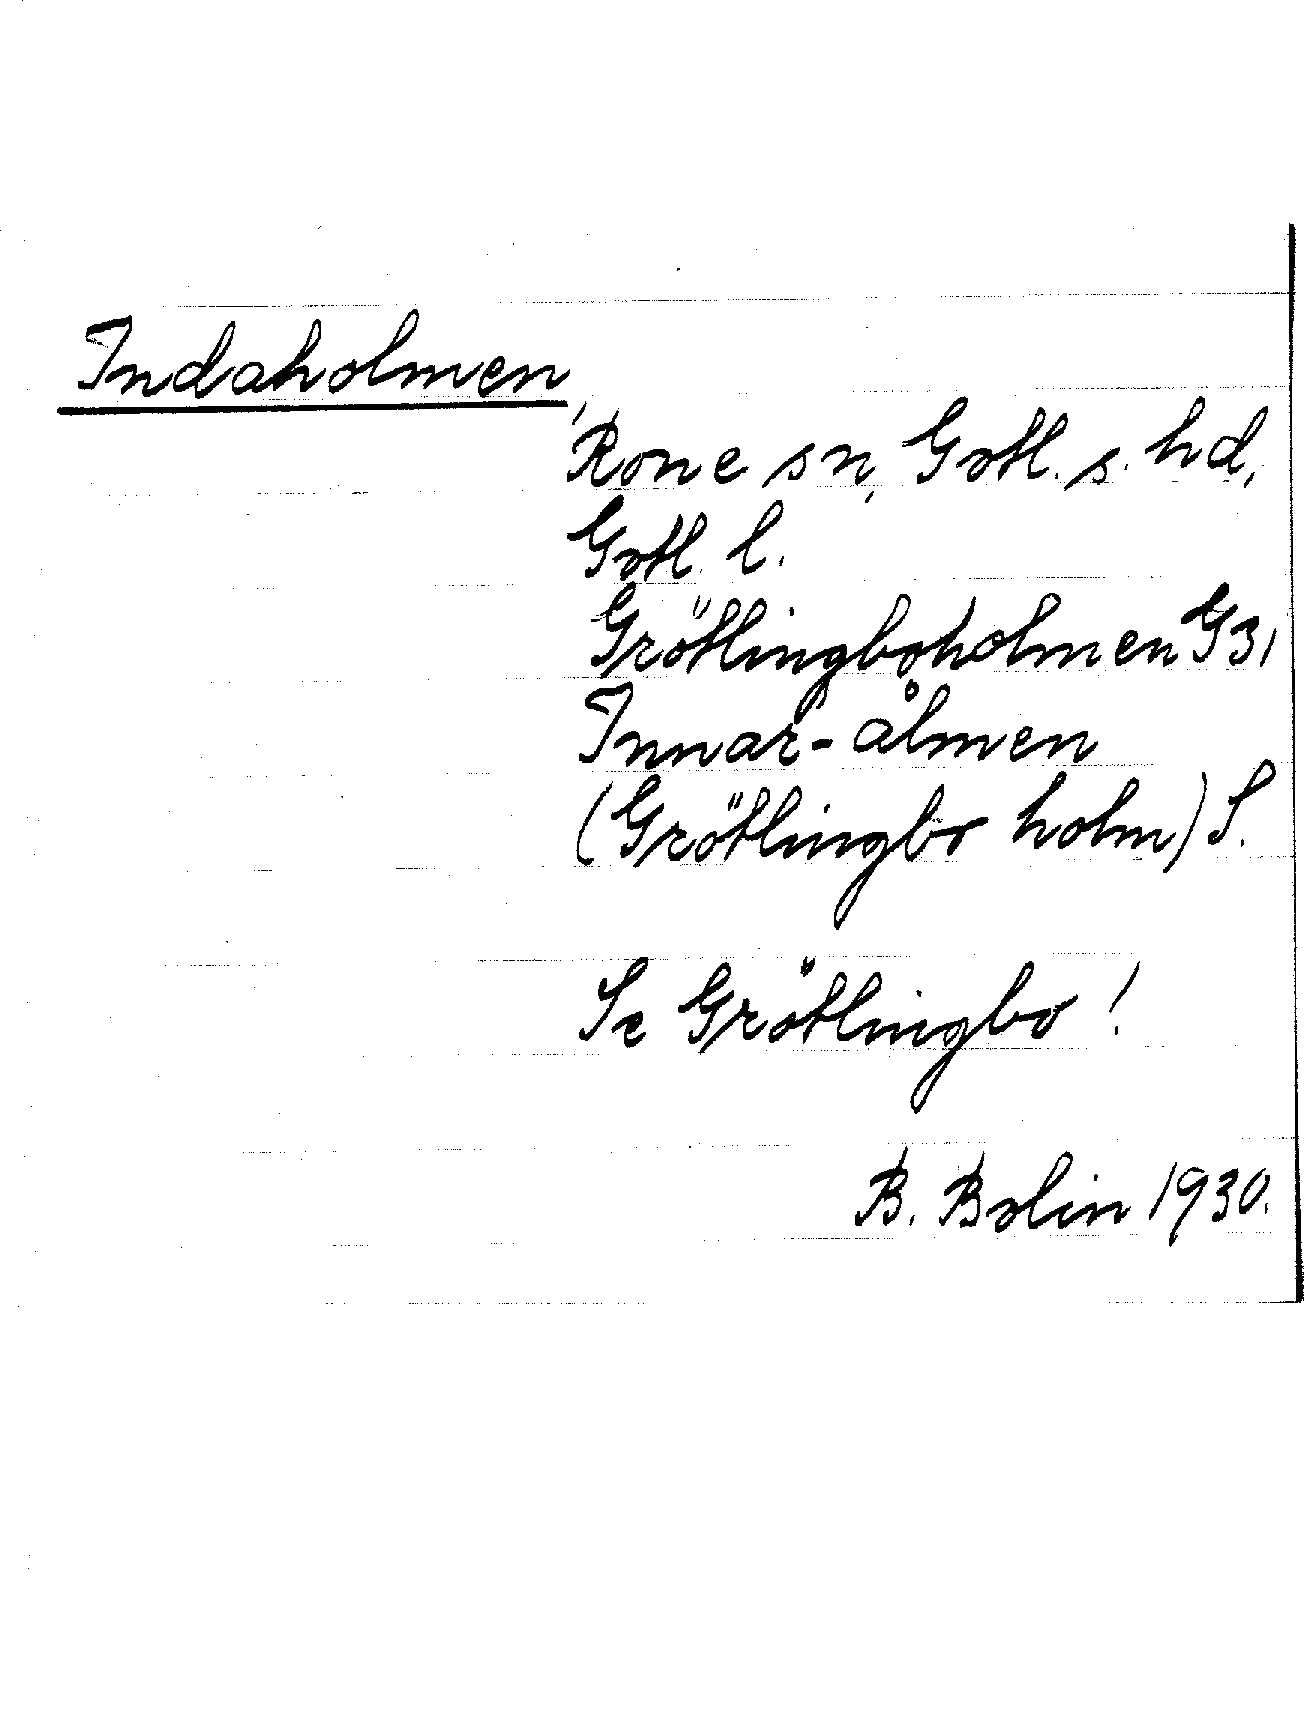 Indaholmen,
Rone sn, Gotl. s. hd,
Gotl. l.
Grötlingboholmen G31
Innar-ålmen
(Grötlingbo holm) S.
Se Grötlingbo!
B. Bolin 1930.